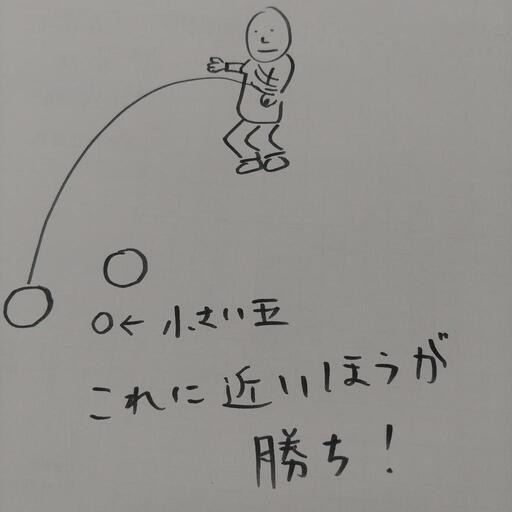 ←小さい玉
これに近いほうが
勝ち!